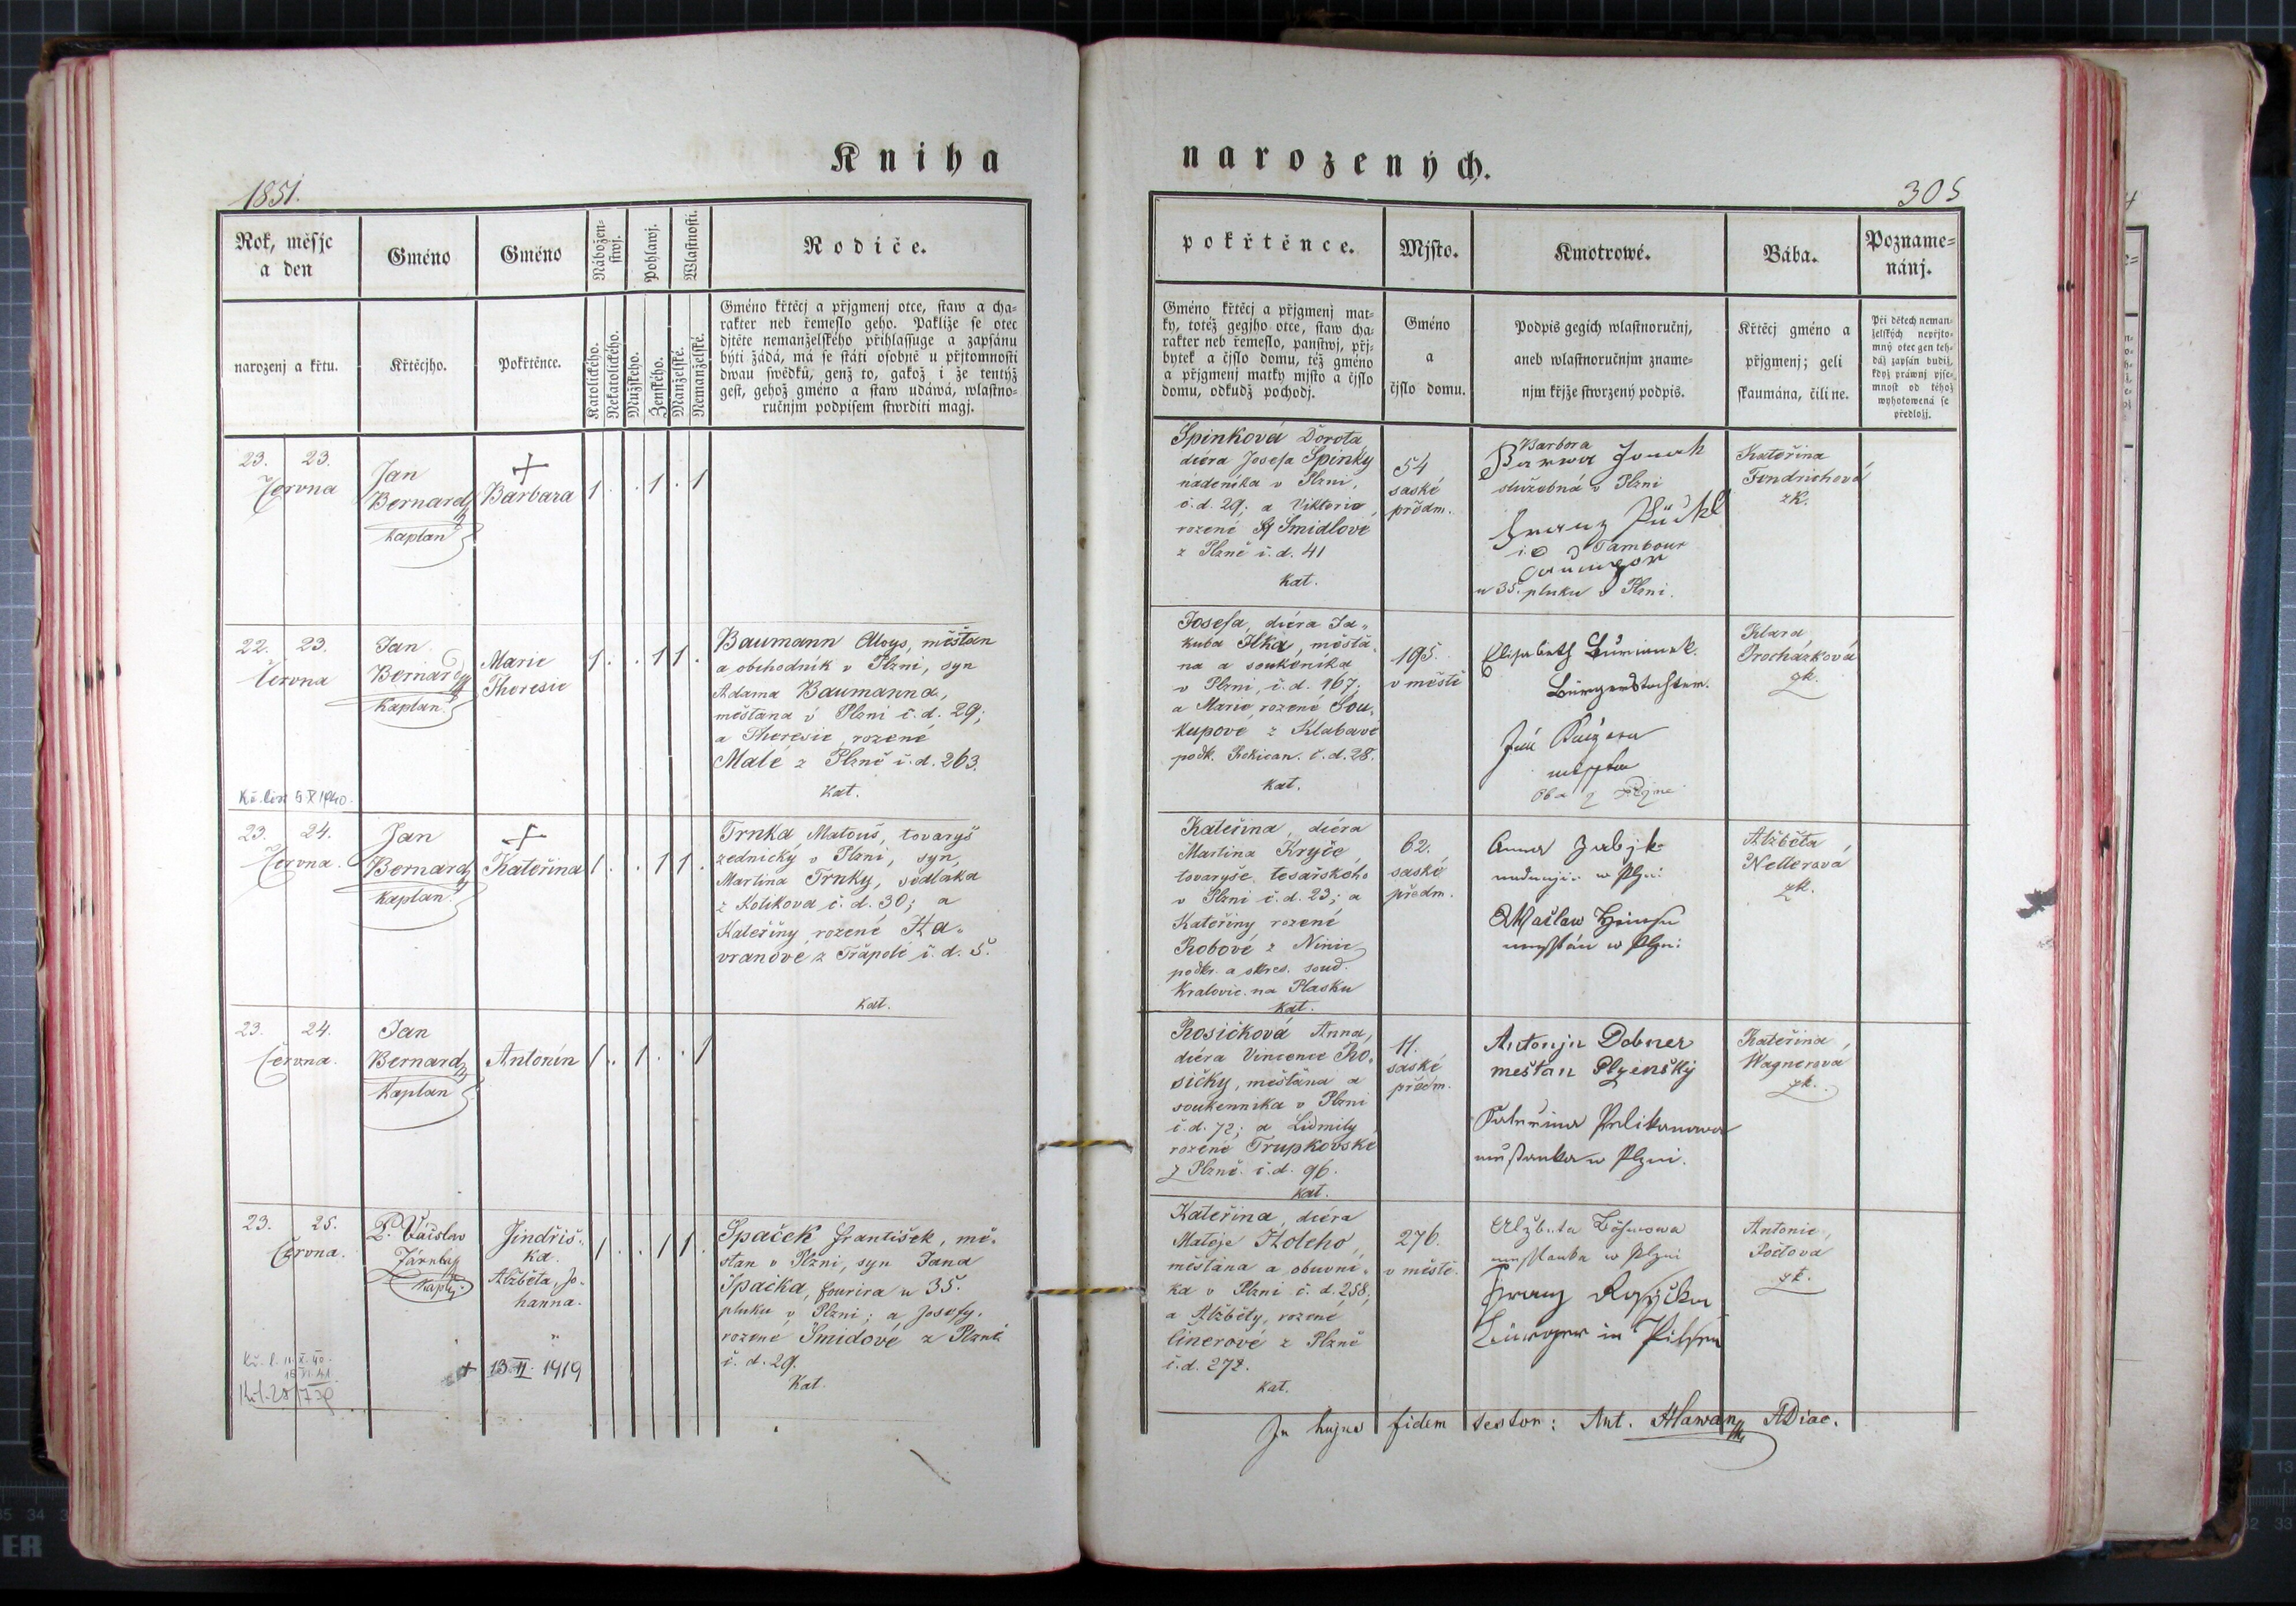 Kniha narozených.
1851.
305
Rok, měsjc
a den
narozenj a křtu.
Gméno
Křtěcjho.
Gméno
Pokřtěnce.
Nábožen-
stwj.
Katolického.
Nekatolického.
Pohlawj.
Mužského.
Ženského.
Wlastnosti.
Manželské.
Nemanželské.
Rodiče.
Gméno křtěcj a přjgmenj otce, staw a cha-
rakter neb řemeslo geho. Pakliže se otec
djtěte nemanželského přihlassuge a zapsánu
býti žádá, má se státi osobně u přjtomnosti
dwau swědků, genž to, gakož i že tentýž
gest, gehož gméno a staw udáwá, wlastno-
ručnjm podpisem stwrditi magj.
pokřtěnce.
Gméno křtěcj a přjgmenj mat-
ky, totéž gegjho otce, staw cha-
rakter neb řemeslo, panstwj, přj-
bytek a čjslo domu, též gméno
a přjgmenj matky mjsto a čjslo
domu, odkudž pochodj.
Mjsto.
Gméno
a
čjslo domu.
Kmotrowé.
Podpis gegich wlastnoručnj,
aneb wlastnoručnjm zname-
njm křjže stwrzený podpis.
Bába.
Křtěcj gméno a
přjgmenj; geli
skaumána, čili ne.
Pozname-
nánj.
Při dětech neman-
želských nepřjto-
mný otec gen teh-
dáž zapsán budiž,
když práwnj pjse-
mnost od téhož
wyhotowená se
předložj.
23. 23.
Června
Jan
Bernard
kaplan
+
Barbara
1 . . 1 . 1
Spinková Dorota
dcera Josefa Spinky
nádeníka v Plzni,
č.d. 29; a Viktorie,
rozené Smidlové
z Plzně č.d. 41
kat.
54
saské
předm.
Barbora
služebná v Plzni
Franz
Tambour
u 35. pluku v Plzni.
Kateřina
Jindrichová
zk.
22. 23.
Června
Jan
Bernard
Kaplan
Marie
Theresie
1 . . 1 1 .
Baumann Aloys, měšťan
a obchodník v Plzni, syn
Adama Baumanna,
měšťana v Plzni č.d. 29;
a Theresie, rozené
Malé z Plzně č.d. 263.
kat.
Josefa, dcera Ja-
kuba Ilka, měšťa-
na a soukeníka
v Plzni, č.d. 167;
a Marie rozené Sou-
kupové z Klabavé
podk. Rokican. č.d. 28.
kat.
195.
v městě
Elisabeth
Bürgerstochter.
Oba z
Klara
Procházková
zk.
Kř. list 5 X 1940.
23. 24.
Června.
Jan
Bernard
Kaplan
+
Kateřina
1 . . 1 1 .
Trnka Matouš, tovaryš
zednický v Plzni, syn
Martina Trnky, sedláka
z Kotikova č.d. 30; a
Kateřiny, rozené Ha-
vranové z Třapolé č.d. 5.
kat.
Kateřina, dcera
Martina Kryče,
tovaryše tesařského
v Plzni č.d. 23; a
Kateřiny rozené
Robové z Ninic
podkr. a okres. soud.
Kralovic. na Plasku
kat.
62.
saské
předm.
Anna
w Plzni
měsstán w Plzni
Alžběta
Nellerová
zk.
23. 24.
Června.
Jan
Bernard
Kaplan
Antonín
1 . 1 . . 1
Rosičková Anna,
dcera Vincence Ro-
sičky, měšťana a
soukenníka v Plzni
č.d. 72; a Lidmily
rozené Trupkovské
z Plzně č.d. 96.
kat.
11.
saské
předm.
Antonjn Dobner
mešťan Plzenský
Pelikanowa
w Plzni.
Kateřina
Wagnerová
zk.
23. 25.
Června.
P. Václav
kaplan
Jindřiš-
ka
Alžběta, Jo-
hanna.
1 . . 1 1 .
Spaček František, mě-
šťan v Plzni, syn Jana
Spačka, fourira u 35.
pluku v Plzni; a Josefy,
rozené Smidové z Plzně
č.d. 29.
Kat.
Kateřina, dcera
Matěje Holého,
měšťana a obuvní-
ka v Plzni č.d. 258,
a Alžběty, rozené
Cinerové z Plzně
č.d. 272.
kat.
276.
v městě.
w Plzni
Franz
Bürger in Pilsen
Antonie
Poctova
zk.
+ 13.II. 1919
In hujus fidem testor: Ant. Hlawan ADiac.